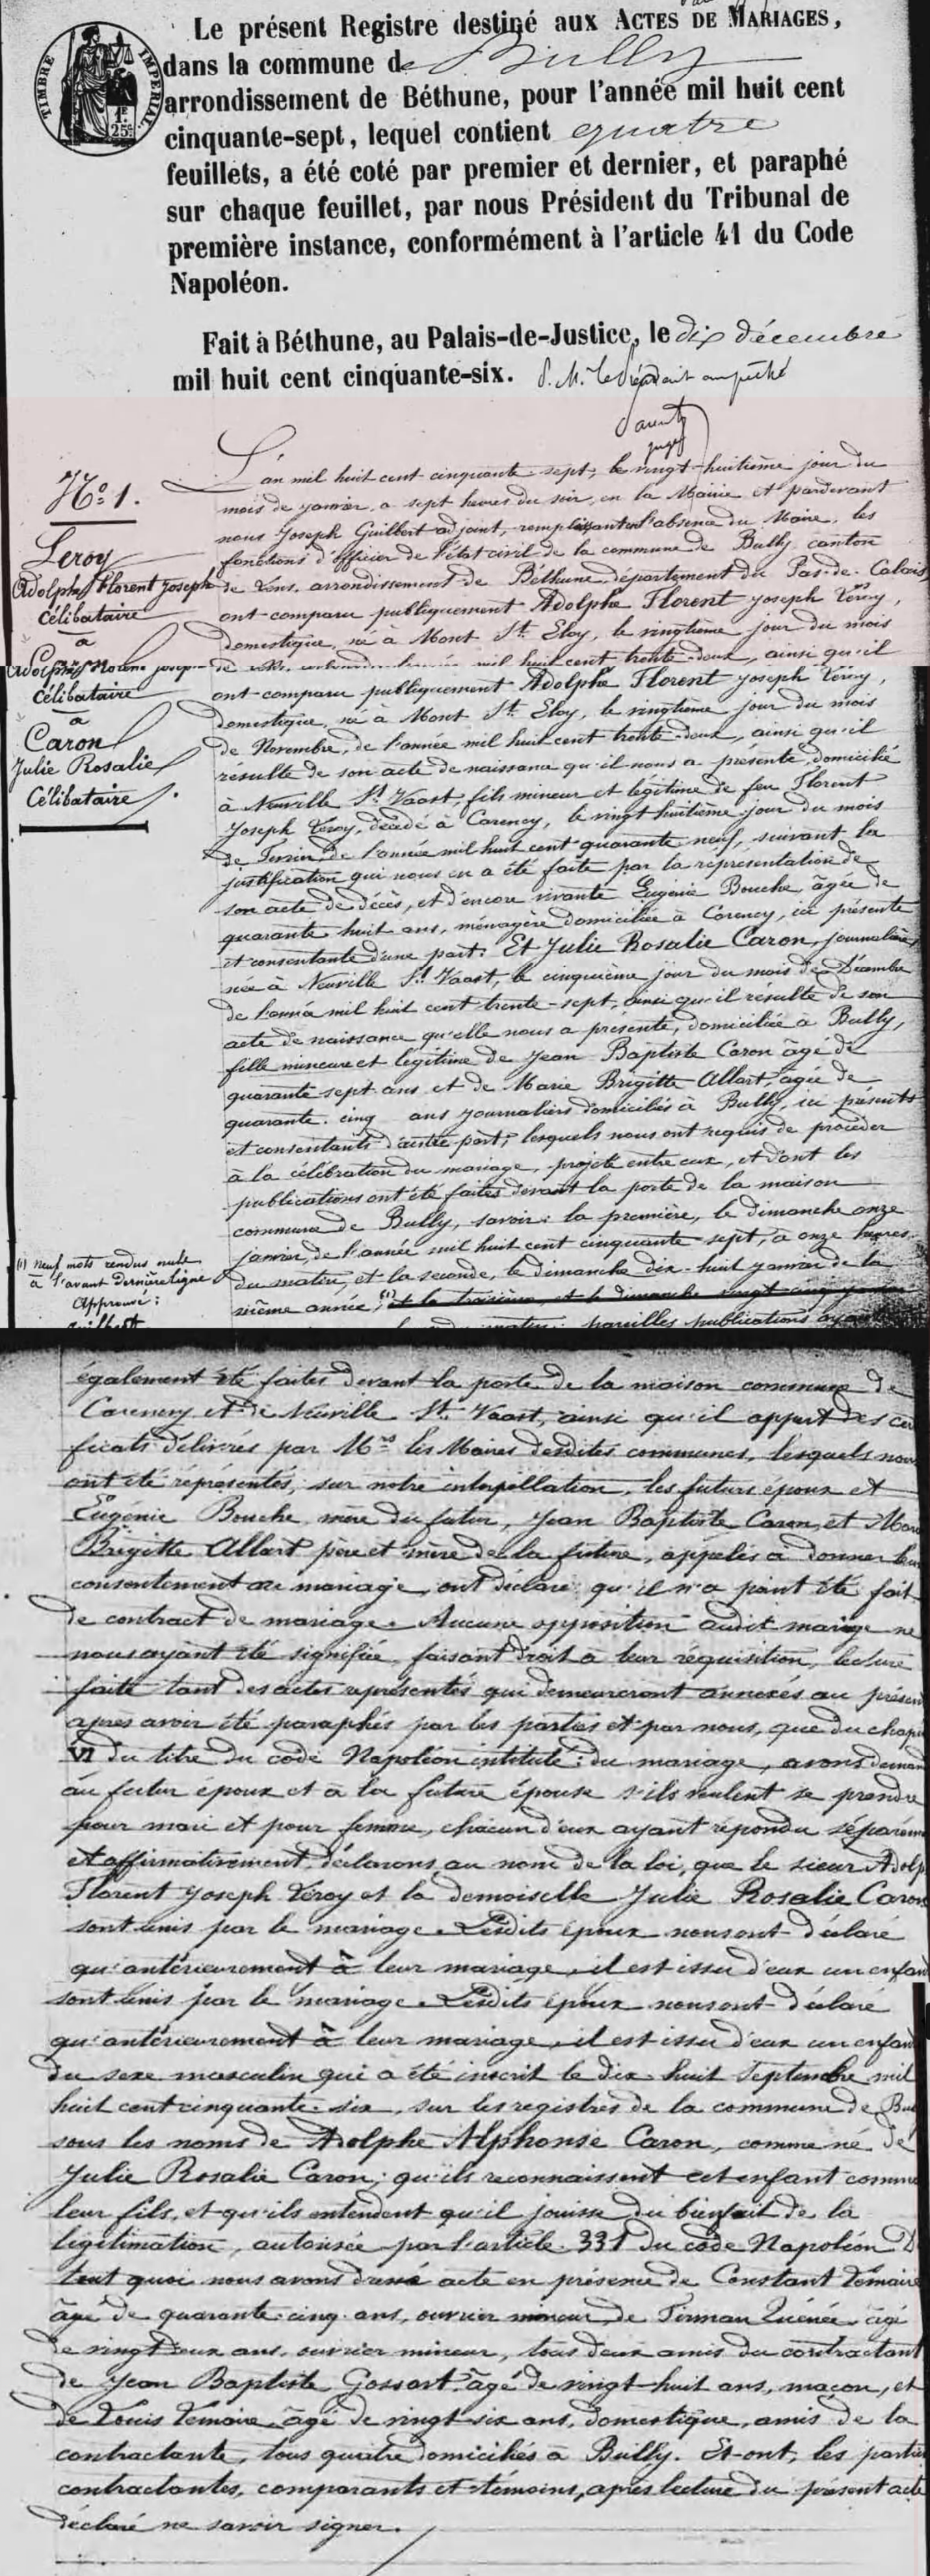 Le présent Registre destiné aux ACTES DE MARIAGES,
dans la commune de Bully
arrondissement de Béthune, pour l'année mil huit cent
cinquante-sept, lequel contient quatre
feuillets, a été coté par premier et dernier, et paraphé
sur chaque feuillet, par nous Président du Tribunal de
première instance, conformément à l'article 41 du Code
Napoléon.
TIMBRE IMPERIAL
1F 25c
Fait à Béthune, au Palais-de-Justice, le dix décembre
mil huit cent cinquante-six. P. M. le Président empêché
juge
No. 1.
Leroy
Adolphe Florent Joseph
Célibataire
a
L'an mil huit cent cinquante-sept, le vingt-huitième jour du
mois de janvier, a sept heures du soir, en la Mairie et pardevant
nous Joseph Guilbert adjoint, remplissant en l'absence du Maire, les
fonctions d'officier de l'état civil de la commune de Bully canton
de Lens, arrondissement de Béthune, département du Pas-de-Calais,
ont comparu publiquement Adolphe Florent Joseph Leroy,
domestique, né à Mont St. Eloy, le vingtième jour du mois
mil huit cent trente-deux, ainsi qu'il
Célibataire
a
Caron
Julie Rosalie
Célibataire.
ont comparu publiquement Adolphe Florent Joseph Leroy,
domestique, né à Mont St. Eloy, le vingtième jour du mois
de Novembre, de l'année mil huit cent trente-deux, ainsi qu'il
résulte de son acte de naissance qu'il nous a présenté, domicilié
à Neuville St. Vaast, fils mineur et légitime de feu Florent
Joseph Leroy, décédé à Carency, le vingt huitième jour du mois
de Février de l'année mil huit cent quarante neuf, suivant la
justification qui nous en a été faite par la représentation de
son acte de décès, et d'encore vivante Eugénie Bouche, âgée de
quarante huit ans, ménagère domiciliée à Carency, ici présente
et consentante d'une part; Et Julie Rosalie Caron, journalière,
née à Neuville St. Vaast, le cinquième jour du mois de Décembre
de l'année mil huit cent trente-sept, ainsi qu'il résulte de son
acte de naissance qu'elle nous a présenté, domiciliée à Bully,
fille mineure et légitime de Jean Baptiste Caron âgé de
quarante sept ans et de Marie Brigitte Allart, âgée de
quarante-cinq ans journaliers domiciliés à Bully, ici présents
et consentants d'autre part; lesquels nous ont requis de procéder
à la célébration du mariage, projeté entre eux, et dont les
publications ont été faites devant la porte de la maison
commune de Bully, savoir: la première, le dimanche onze
janvier, de l'année mil huit cent cinquante sept, à onze heures
du matin, et la seconde, le dimanche dix-huit janvier de la
même année, (1) et la troisième, et le dimanche vingt cinq janvier
matin; pareilles publications ayant
(1) neuf mots rendus nuls
à l'avant dernière ligne
Approuvé:
Guilbert
également été faites devant la porte de la maison commune de
Carency et de Neuville St. Vaast, ainsi qu'il appert des cer
ficats délivrés par Mrs les Maires desdites communes, lesquels nous
ont été représentés; sur notre interpellation, les futurs époux et
Eugénie Bouche, mère du futur, Jean Baptiste Caron, et Marie
Brigitte Allart père et mère de la future, appelés a donner leur
consentement au mariage, ont déclaré qu'il n'a point été fait
de contract de mariage. Aucune opposition audit mariage ne
nous ayant été signifiée, faisant droit à leur réquisition, lecture
faite tant des actes représentés qui demeureront annexés au présent
après avoir été paraphés par les parties et par nous, que du chapi
VI du titre du code Napoléon intitulé: du mariage, avons demand
au futur époux et à la future épouse s'ils veulent se prendre
pour mari et pour femme, chacun d'eux ayant répondu séparém
et affirmativement, déclarons, au nom de la loi, que le sieur Adolp
Florent Joseph Leroy et la demoiselle Julie Rosalie Caron
sont unis par le mariage. Lesdits époux nous ont déclaré
qu'antérieurement à leur mariage, il est issu d'eux un enfan
sont unis par le mariage. Lesdits époux nous ont déclaré
qu'antérieurement à leur mariage, il est issu d'eux un enfan
du sexe masculin qui a été inscrit le dix-huit Septembre mil
huit cent cinquante-six, sur les registres de la commune de Bul
sous les noms de Adolphe Alphonse Caron, comme né de
Julie Rosalie Caron; qu'ils reconnaissent cet enfant comme
leur fils, et qu'ils entendent qu'il jouisse du bienfait de la
légitimation, autorisée par l'article 331 du code Napoléon. D
tout quoi nous avons dressé acte en présence de Constant Lemaire
âgé de quarante-cinq ans, ouvrier mineur, de Firman Quénée, âgé
de vingt deux ans, ouvrier mineur, tous deux amis du contractant
de Jean Baptiste Gossart, âgé de vingt-huit ans, maçon, et
de Louis Lemaire, âgé de vingt-six ans, domestique, amis de la
contractante, tous quatre domiciliés à Bully. Et ont, les parties
contractantes, comparants et témoins, après lecture du présent acte
déclaré ne savoir signer.